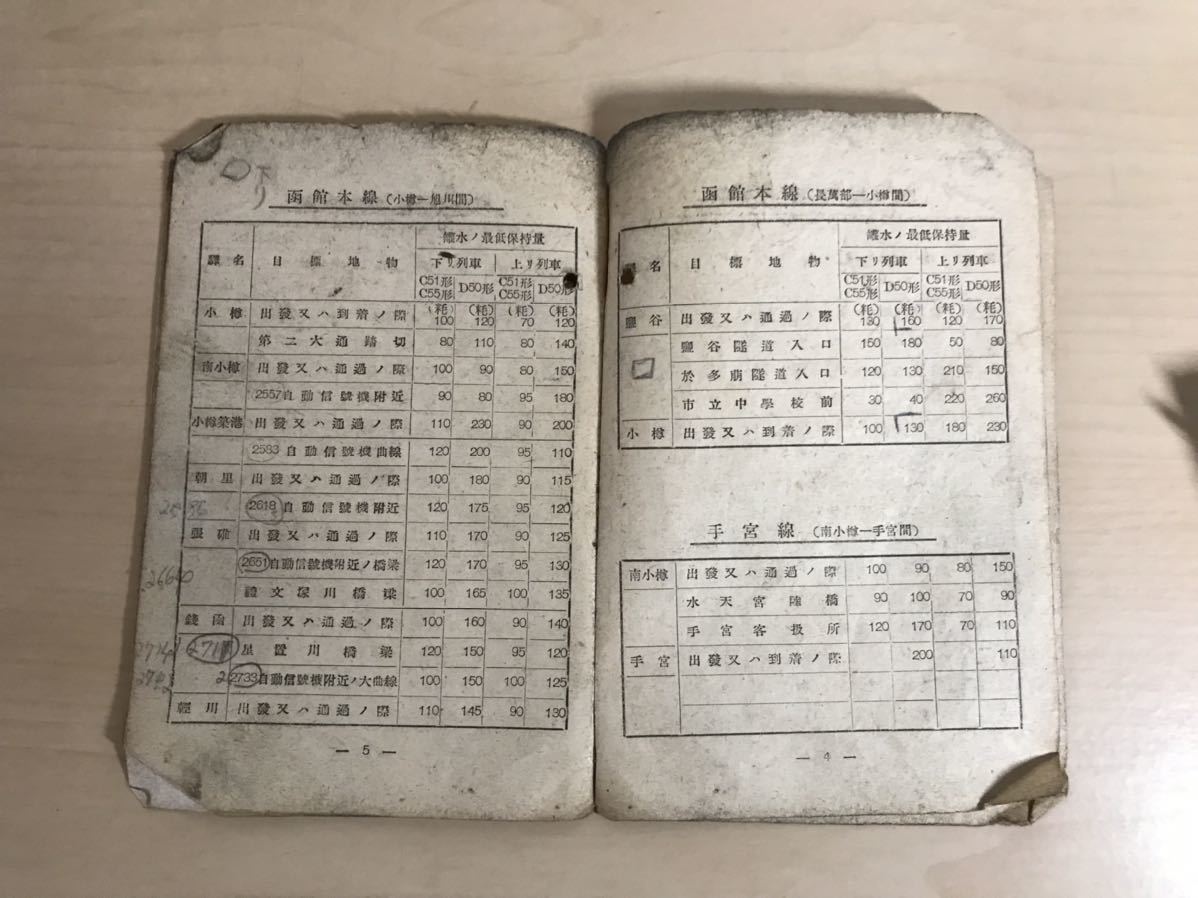 函館本線(長萬部—小樽間)
驛名 目標地物 罐水ノ最低保持量
下リ列車 上リ列車
C51形 C55形 D50形 C51形 C55形 D50形
(粍) (粍) (粍) (粍)
鹽谷 出發又ハ通過ノ際 130 160 120 170
鹽谷隧道入口 150 180 50 80
於多萠隧道入口 120 130 210 150
市立中學校前 30 40 220 260
小樽 出發又ハ到着ノ際 100 130 180 230
手宮線(南小樽—手宮間)
南小樽 出發又ハ通過ノ際 100 90 80 150
水天宮陸橋 90 100 70 90
手宮客扱所 120 170 70 110
手宮 出發又ハ到着ノ際 200 110
— 4 —
下り
函館本線(小樽—旭川間)
驛名 目標地物 罐水ノ最低保持量
下リ列車 上リ列車
C51形 C55形 D50形 C51形 C55形 D50形
(粍) (粍) (粍) (粍)
小樽 出發又ハ到着ノ際 100 120 70 120
第二大通踏切 80 110 80 140
南小樽 出發又ハ通過ノ際 100 90 80 150
2557自動信號機附近 90 80 95 180
小樽築港 出發又ハ通過ノ際 110 230 90 200
2583自動信號機曲線 120 200 95 110
朝里 出發又ハ通過ノ際 100 180 90 115
2618自動信號機附近 120 175 95 120
張碓 出發又ハ通過ノ際 110 170 90 125
2651自動信號機附近ノ橋梁 120 170 95 130
禮文塚川橋梁 100 165 100 135
錢函 出發又ハ通過ノ際 100 160 90 140
星置川橋梁 120 150 95 120
2733自動信號機附近ノ大曲線 100 150 100 125
輕川 出發又ハ通過ノ際 110 145 90 130
— 5 —